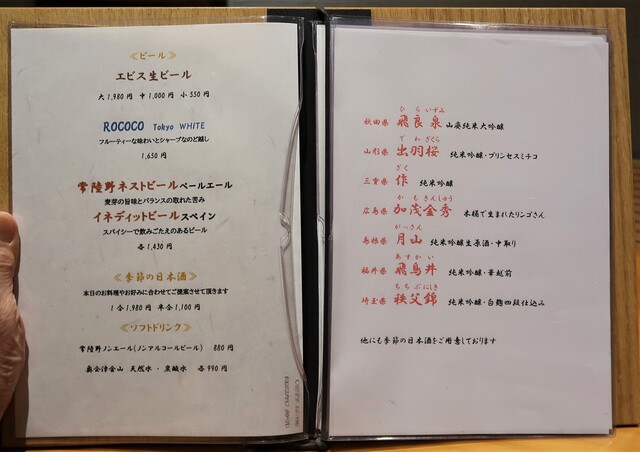 ≪ビール≫
エビス生ビール
大1,980円 中1,000円 小550円
ROCOCO Tokyo WHITE
フルーティーな味わいとシャープなのど越し
1,650円
常陸野ネストビールペールエール
麦芽の旨味とバランスの取れた苦み
イネディットビールスペイン
スパイシーで飲みごたえのあるビール
各1,430円
≪季節の日本酒≫
本日のお料理やお好みに合わせてご提案させて頂きます
1合1,980円 半合1,100円
≪ソフトドリンク≫
常陸野ノンエール(ノンアルコールビール) 880円
奥会津金山 天然水・炭酸水 各990円
ひらいずみ
秋田県 飛良泉 山廃純米大吟醸
でわざくら
山形県 出羽桜 純米吟醸・プリンセスミチコ
ざく
三重県 作 純米吟醸
かもきんしゅう
広島県 加茂金秀 木桶で生まれたリンゴさん
がっさん
島根県 月山 純米吟醸生原酒・中取り
あすかい
福井県 飛鳥井 純米吟醸・華越前
ちちぶにしき
埼玉県 秩父錦 純米吟醸・白麹四段仕込み
他にも季節の日本酒をご用意しております